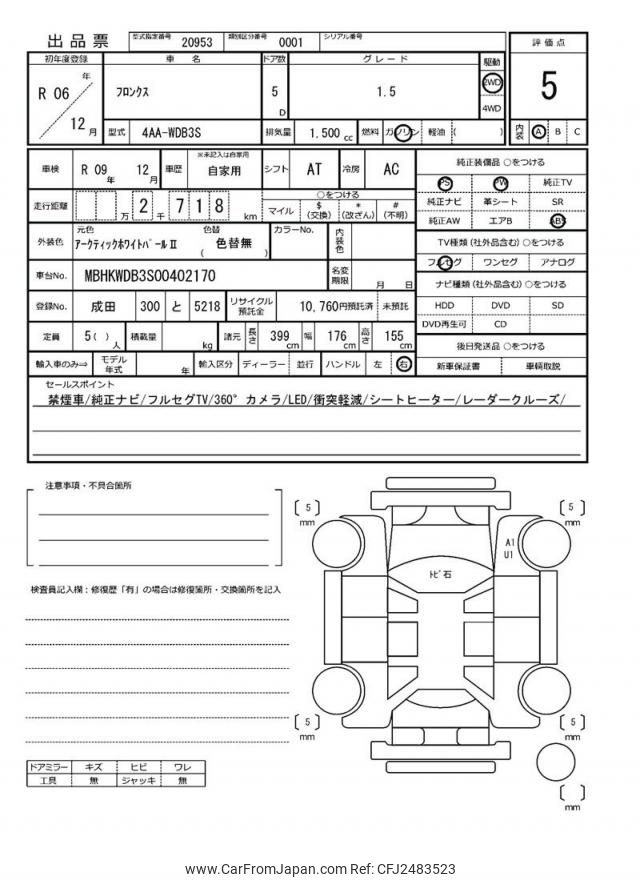 出品票 型式指定番号 20953 類別区分番号 0001 シリアル番号
初年度登録 車名 ドア数 グレード 駆動 評価点
R 06 年 12 月 フロンクス 5 D 1.5 2WD 4WD 5
型式 4AA-WDB3S 排気量 1,500 cc 燃料 ガソリン 軽油 ( ) 内装 A B C
車検 R 09 年 12 月 車歴 ※未記入は自家用 自家用 シフト AT 冷房 AC
走行距離 万 2 千 7 1 8 km ○をつける マイル $ (交換) * (改ざん) # (不明)
外装色 元色 アークティックホワイトパール Ⅱ 色替 ( 色替無 ) カラーNo. 内装色
車台No. MBHKWDB3S00402170 名変期限 月 日
登録No. 成田 300 と 5218 リサイクル預託金 10,760円預託済 未預託
定員 5 ( ) 人 積載量 kg 諸元 長さ 399 cm 幅 176 cm 高さ 155 cm
輸入車のみ⇒ モデル年式 年 輸入区分 ディーラー 並行 ハンドル 左 右
純正装備品 ○をつける
PS PW 純正TV
純正ナビ 革シート SR
純正AW エアB ABS
TV種類 (社外品含む) ○をつける
フルセグ ワンセグ アナログ
ナビ種類 (社外品含む) ○をつける
HDD DVD SD
DVD再生可 CD
後日発送品 ○をつける
新車保証書 車輌取説
セールスポイント
禁煙車/純正ナビ/フルセグTV/360°カメラ/LED/衝突軽減/シートヒーター/レーダークルーズ/
注意事項・不具合箇所
検査員記入欄:修復歴「有」の場合は修復箇所・交換箇所を記入
5 mm
5 mm
A1
U1
トビ石
5 mm
5 mm
mm
ドアミラー キズ ヒビ ワレ
工具 無 ジャッキ 無
www.CarFromJapan.com Ref: CFJ2483523